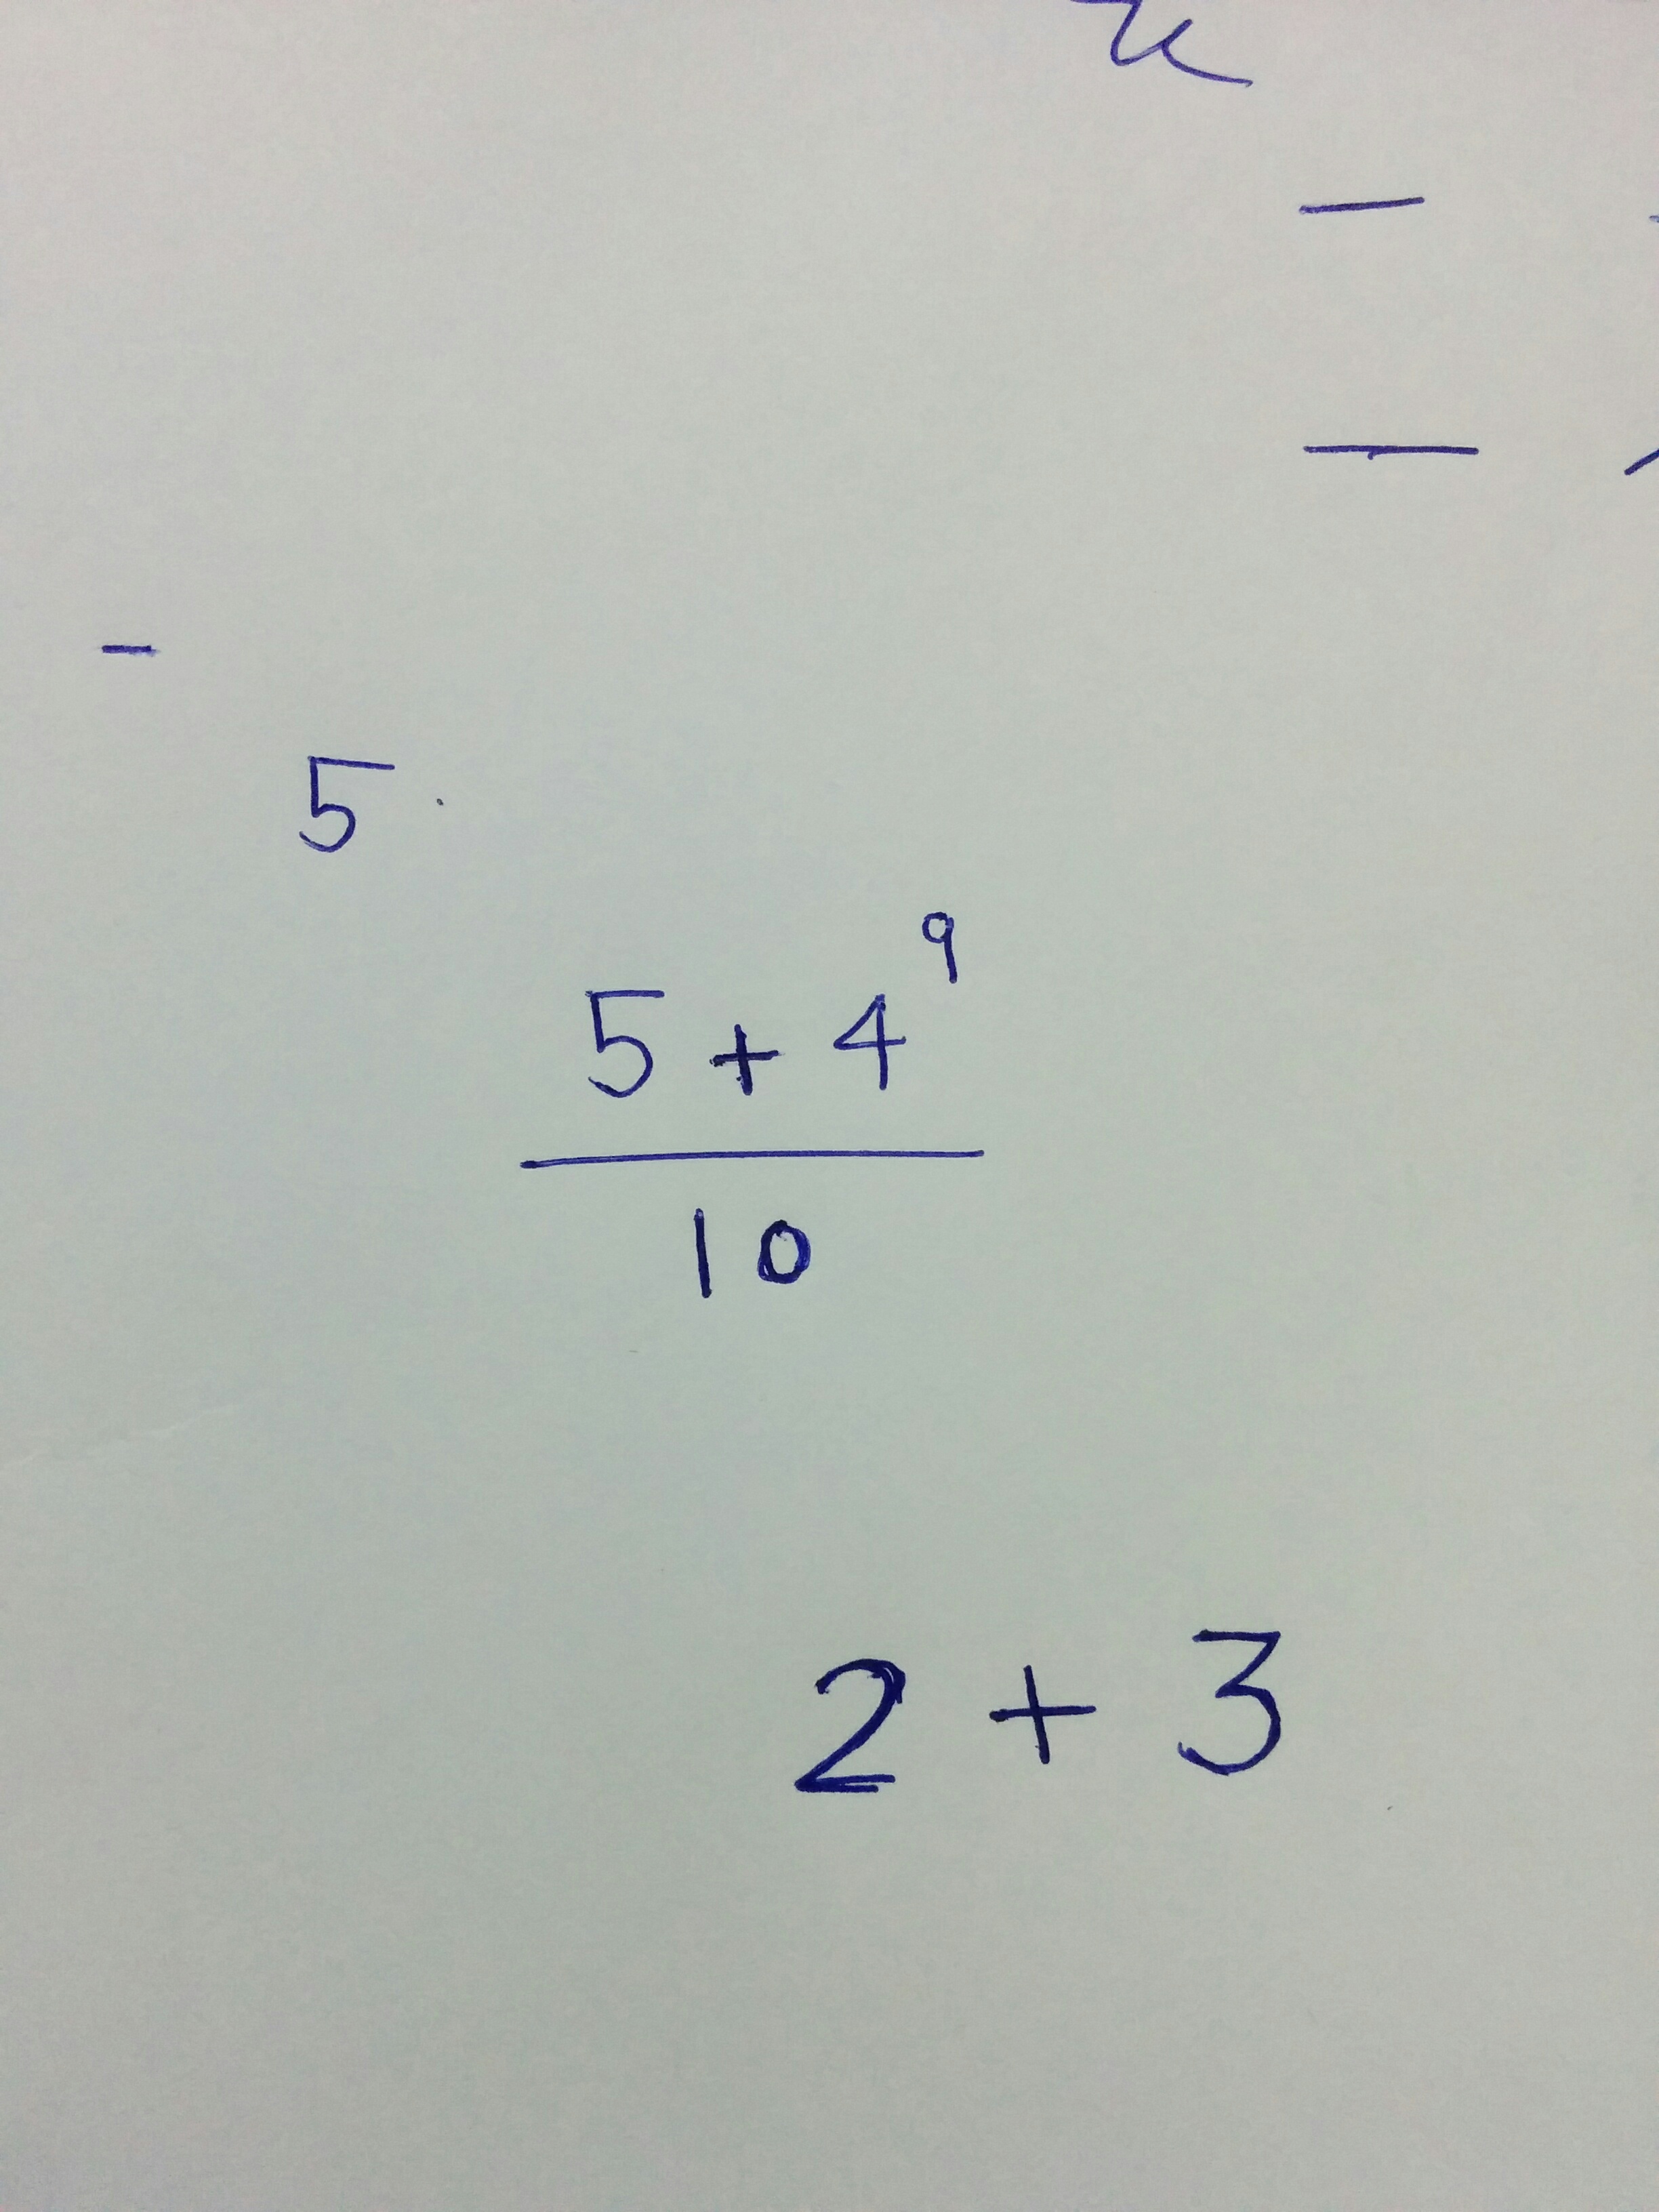 5
5 + 4⁹
10
2 + 3